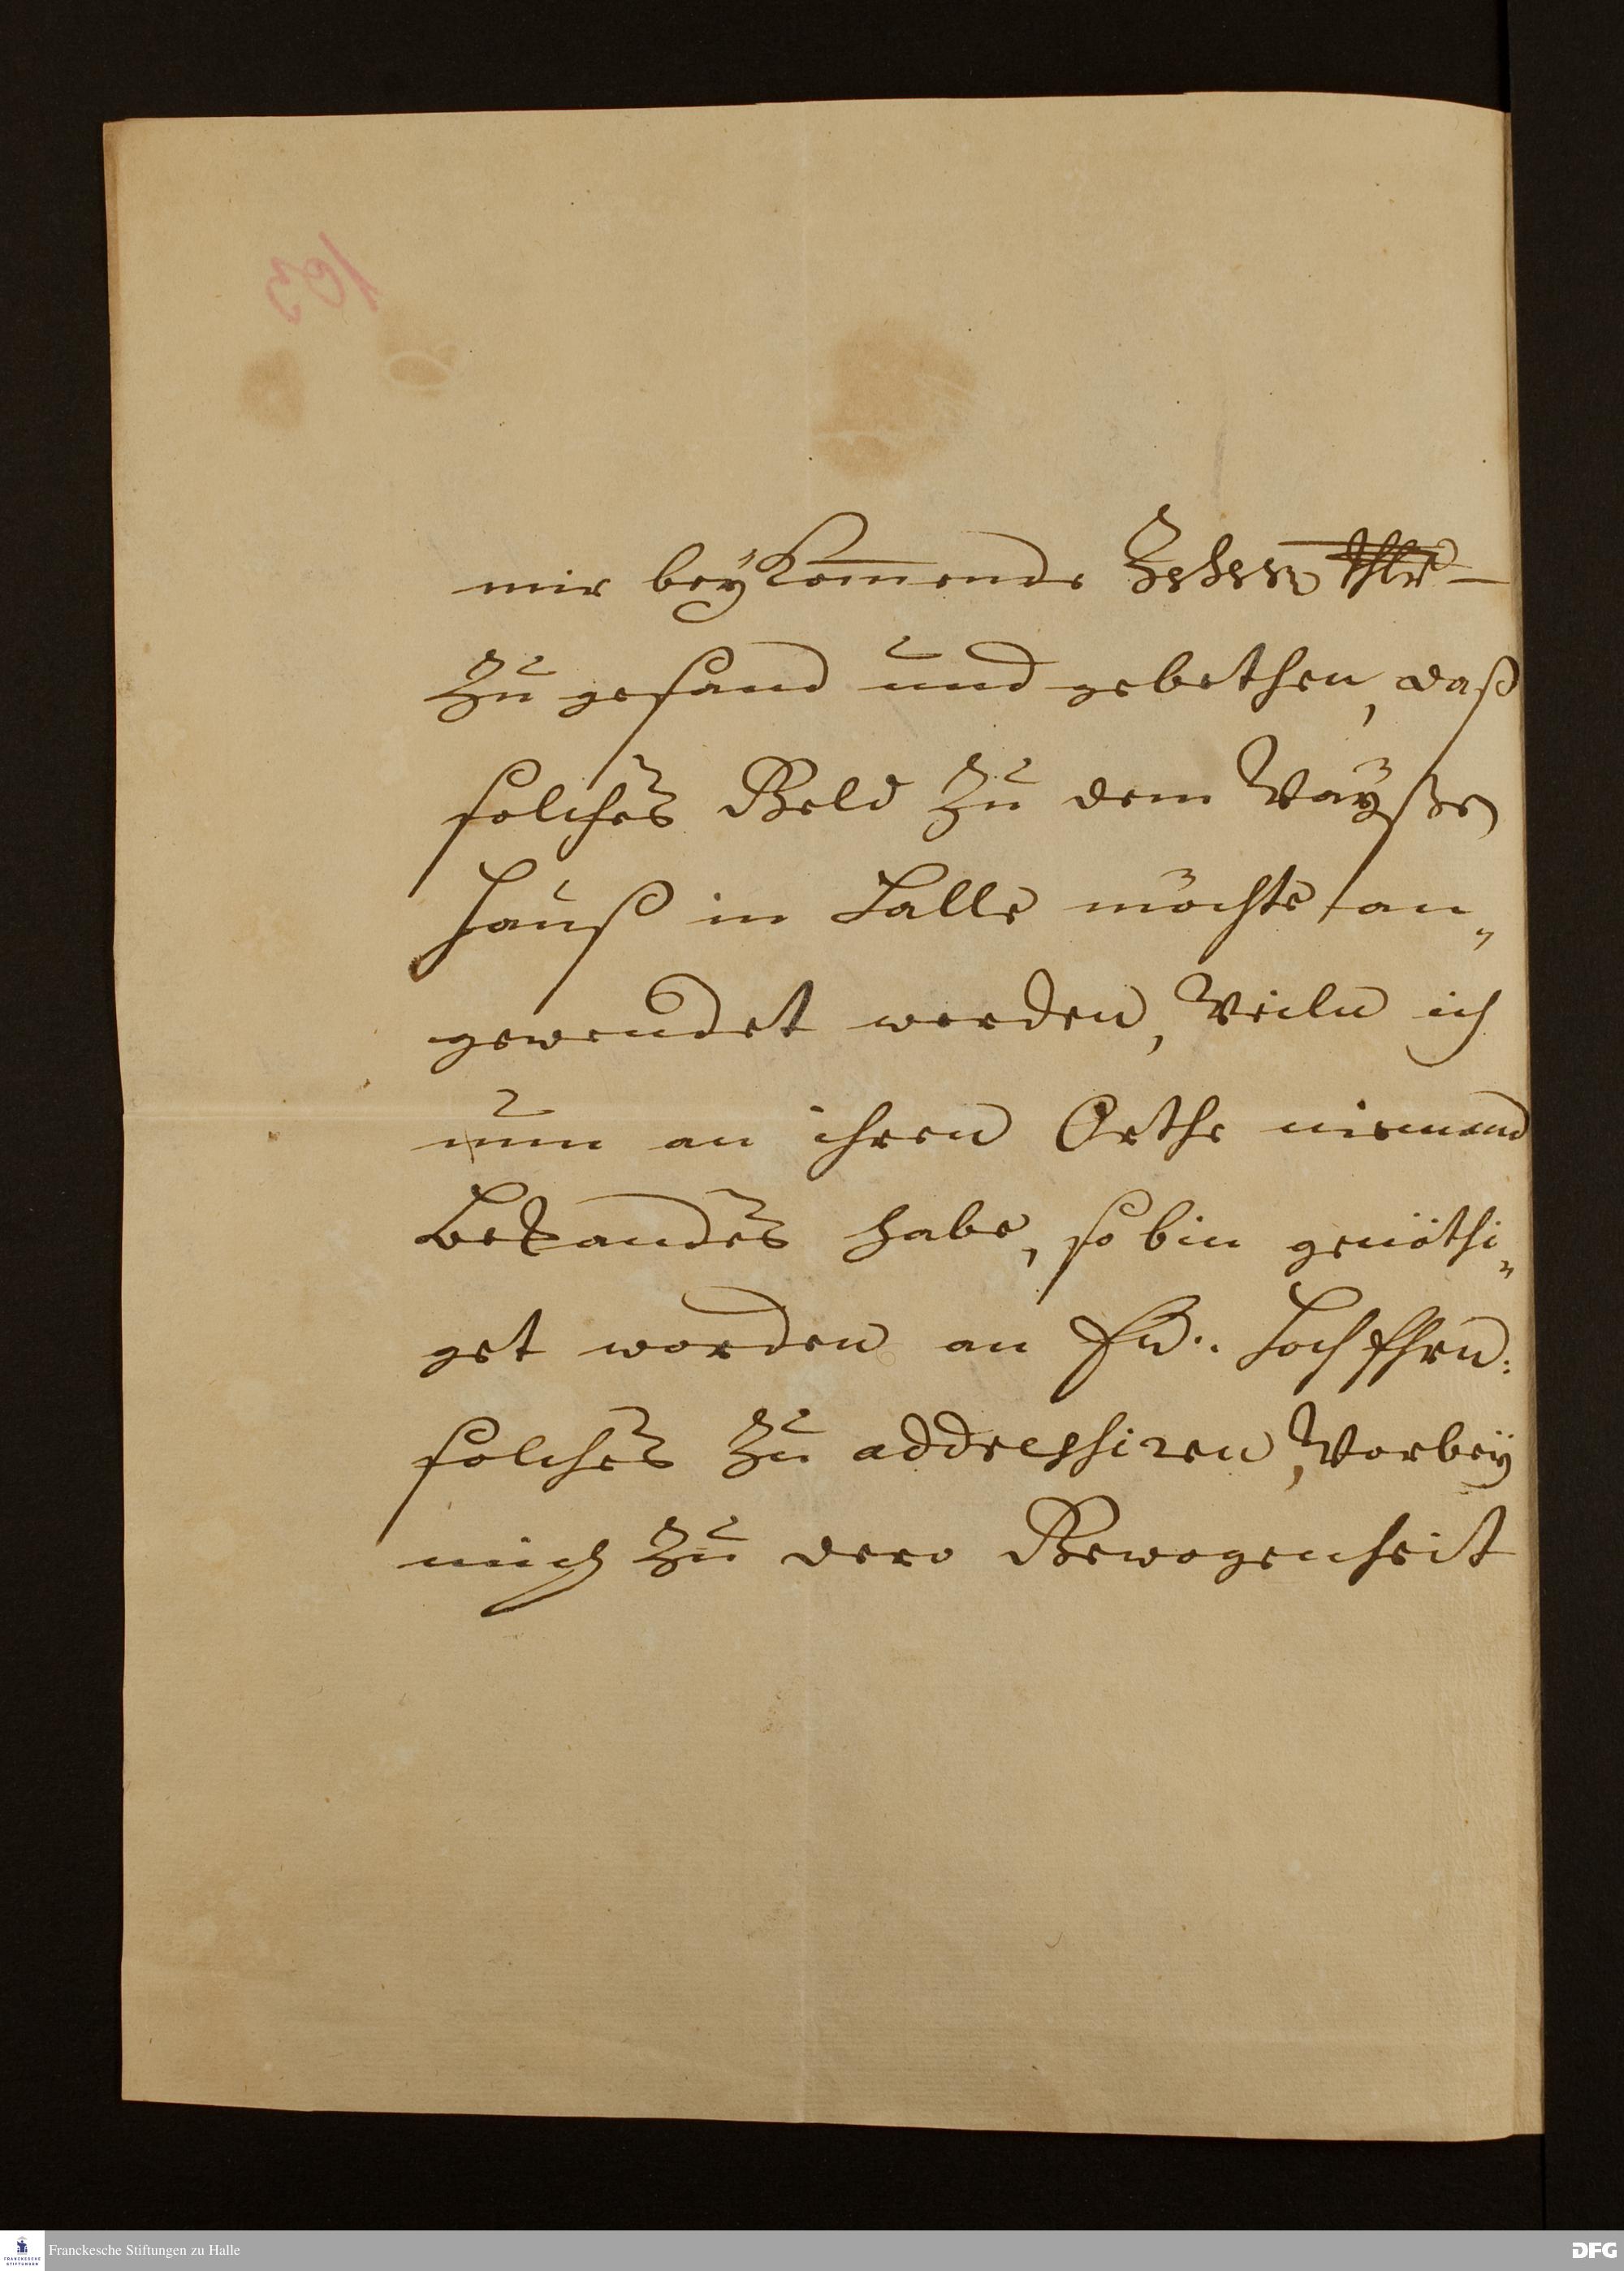 103
mir beÿkom̅ende Zehen Thlr –
Zu gesand und gebethen, daß
solches Geld Zu dem Waÿßen
Hauß in Halle möchte an„
gewendet werden, Weiln ich
nun an ihren Orthe niemand
Bekandes habe, so bin genöthi„
get worden an Ew. HochEhrw:
solches Zu addressiren, Worbeÿ
mich Zu dero Gewogenheit
FRANCKESCHE
STIFTUNGEN
Franckesche Stiftungen zu Halle
DFG